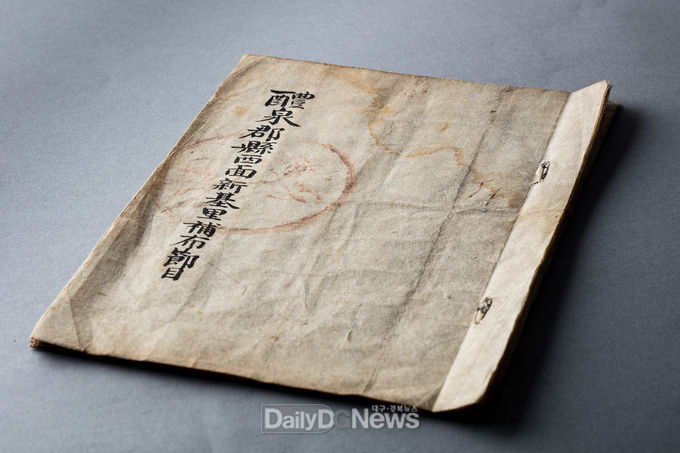 醴泉郡縣西面新基里補布節目
대구·경북뉴스
DailyDGNews